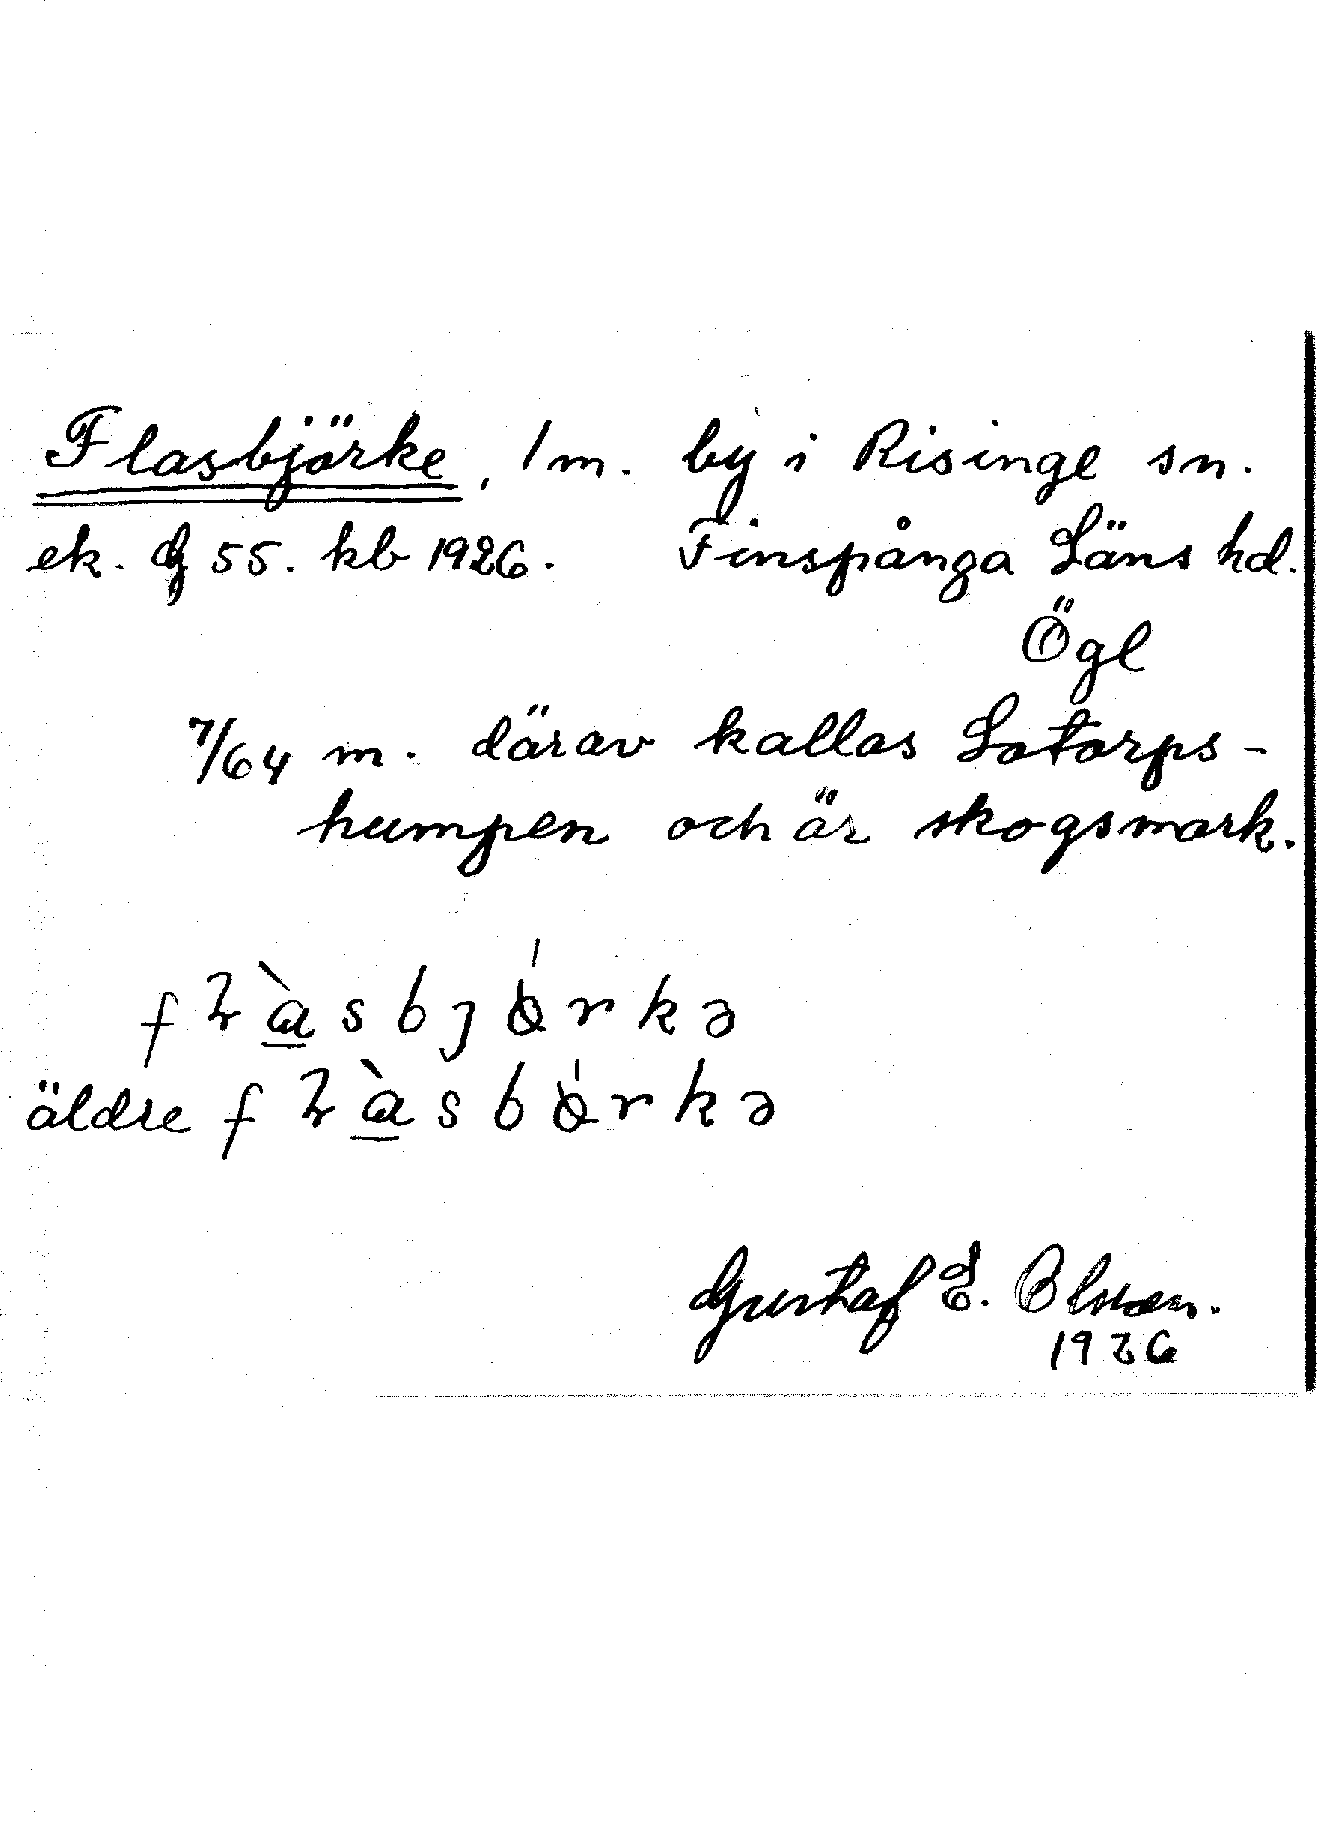 Flasbjörke, 1 m. by i Risinge sn.
ek. G 55. kb 1926. Finspånga Läns hd.
Ögl
7/64 m. därav kallas Lotorps-
humpen och är skogsmark.
fɽɑ̀sbjǿrkə
äldre fɽɑ̀sbǿrkə
Gustaf E. Olsson.
1926